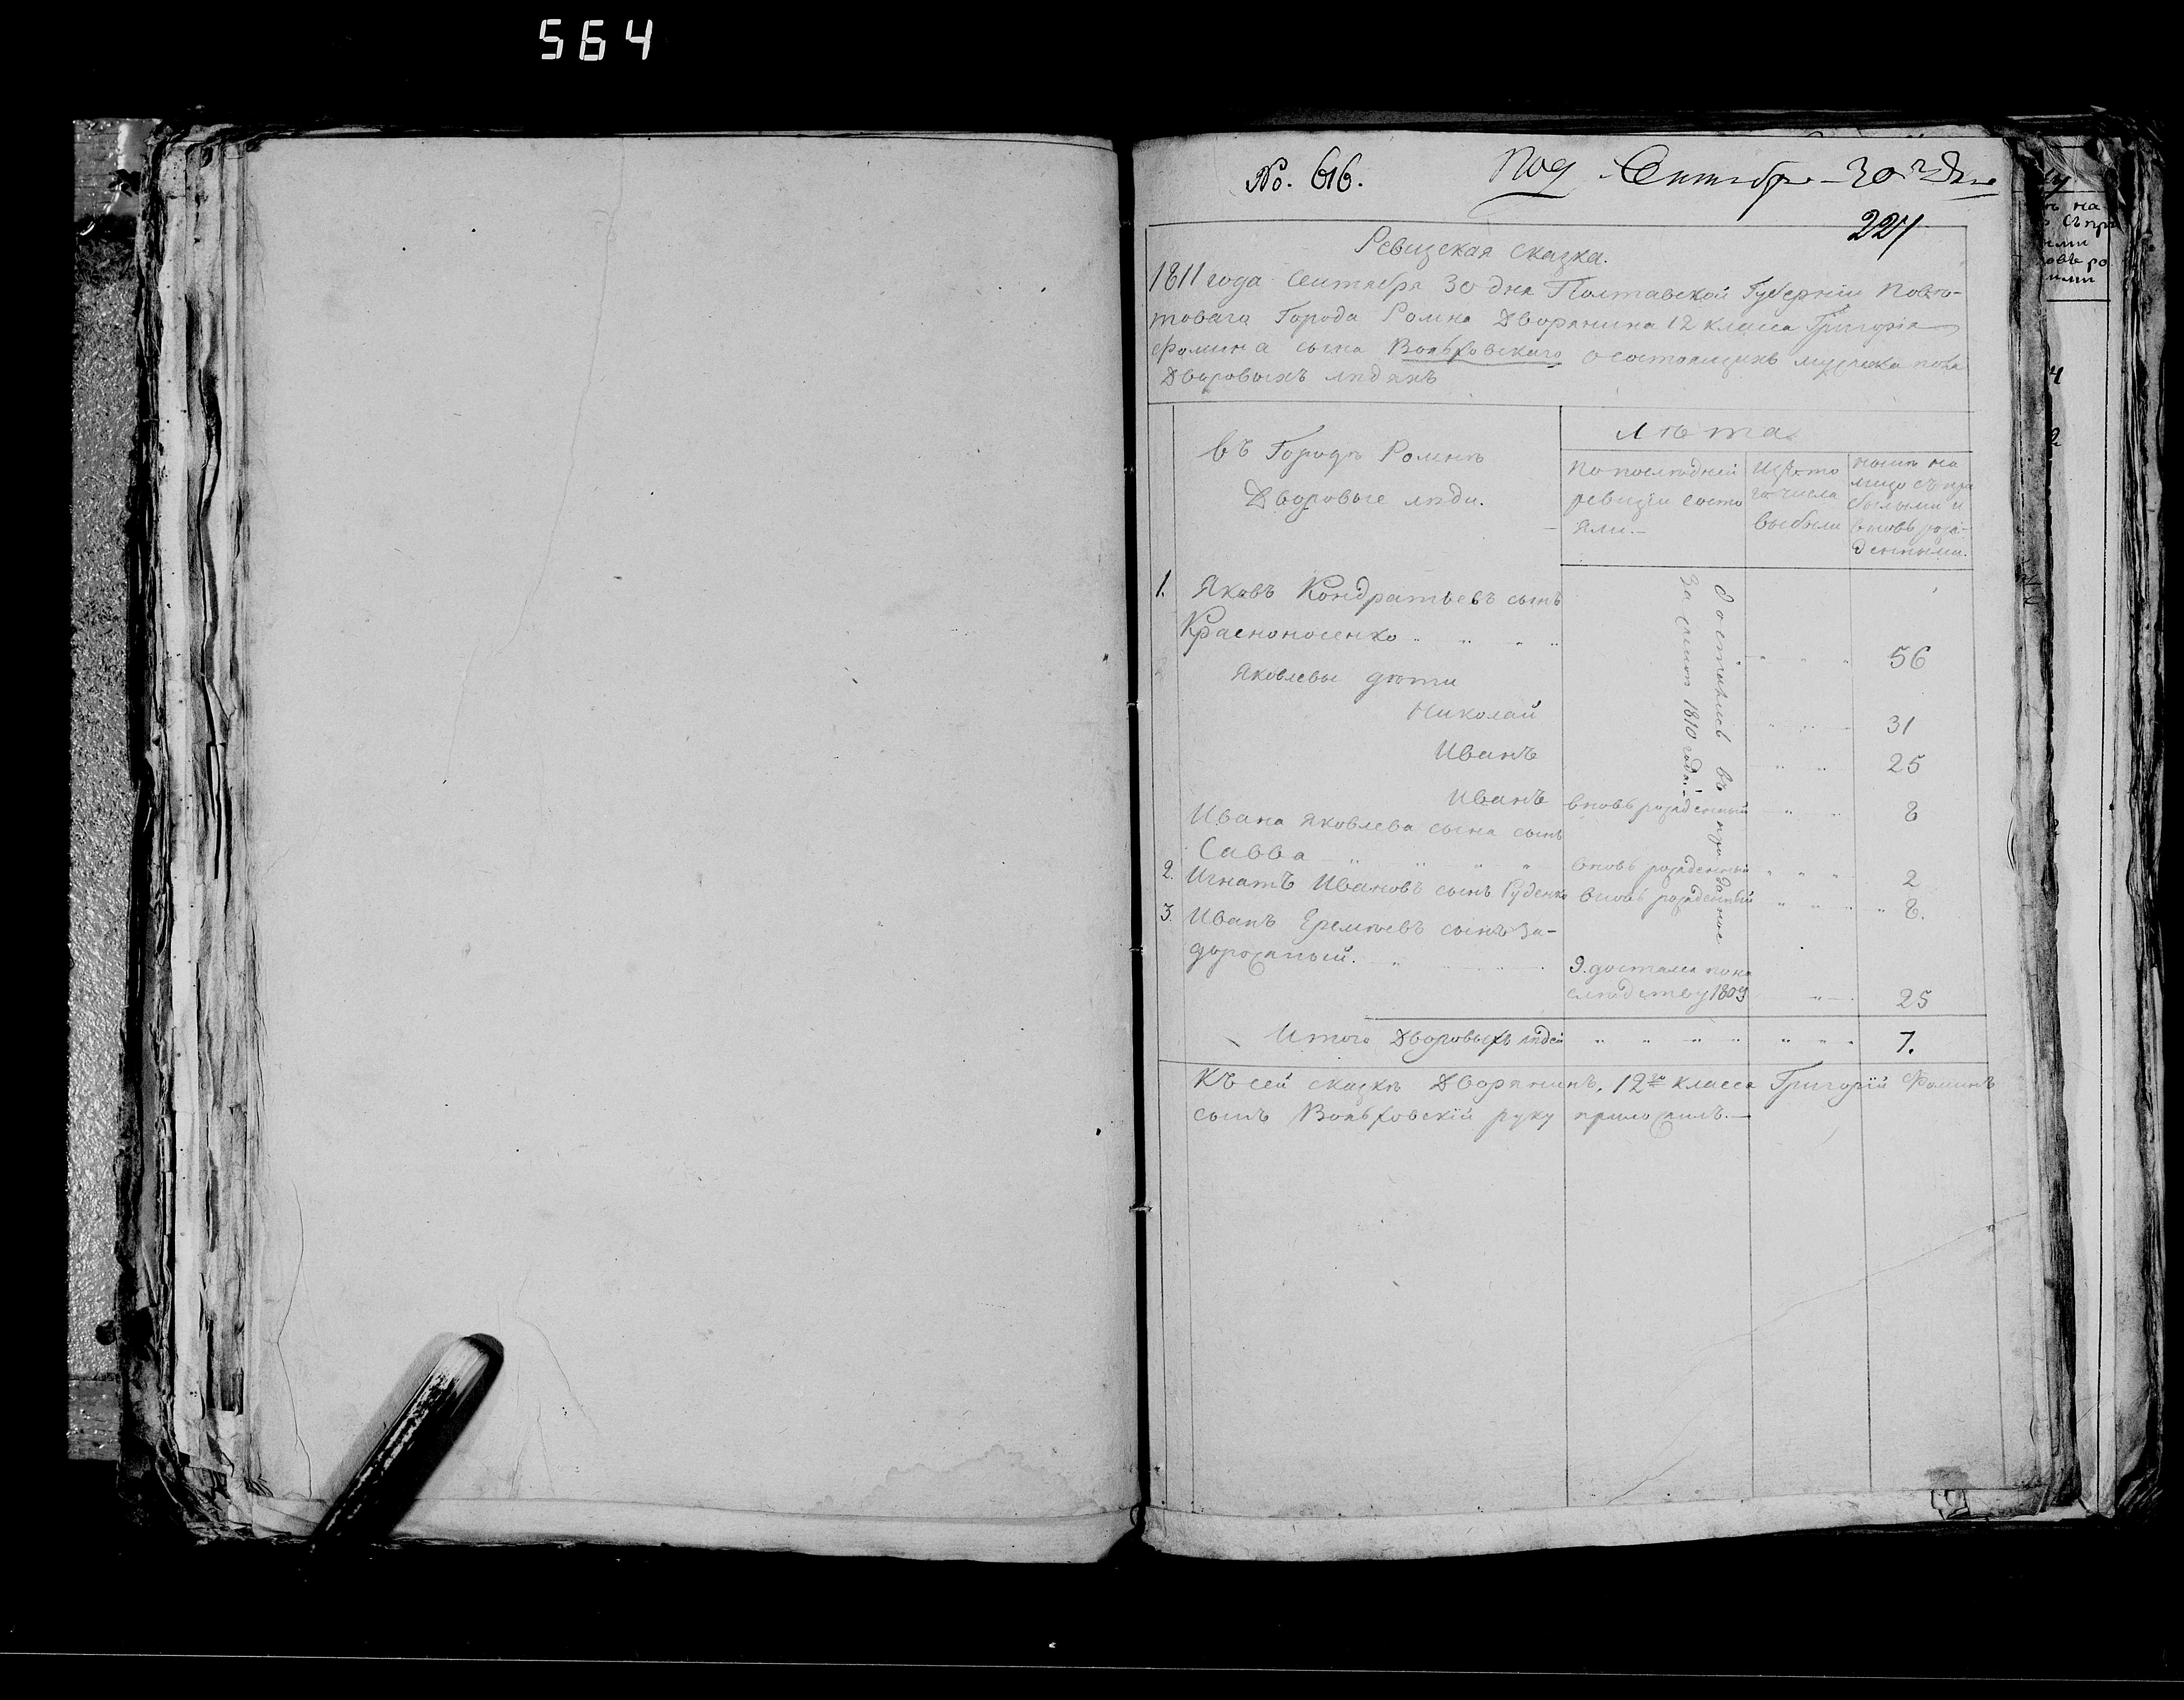 564
No. 616. Под. Сентября 30 дня
224
Ревизская сказка.
1811 года Сентября 30 дня Полтавской Губернiи Повѣ-
товаго Города Ромна Дворянина 12 класса Григорiя
Фомина сына Вольховскаго о состоящихъ мужеска пола
Дворовыхъ людяхъ
въ Городѣ Ромнѣ
Дворовые люди.
лѣта
По послѣдней
ревизiи состо
яли.
Изъ то
го числа
выбыли
нынѣ на
лицо съ при
былыми и
вновь рож-
денными.
1. Яковъ Кондратьевъ сынъ
Красноносенко " " " " 56
Яковлевы дѣти
Николай " " 31
Иванъ " " 25
Иванъ вновь рожденный " " 8
Ивана Яковлева сына сынъ
Савва " " " " вновь рожденный " " " 2
2. Игнатъ Ивановъ сынъ Руденко вновь рожденный " " " 8.
3. Иванъ Еремѣевъ сынъ За-
дорожный. 9. достался по на
слѣдству 1809 " 25
достались въ продаже
1810 года.
Итого Дворовыхъ людей " " " " " " " 7.
Къ сей сказкѣ Дворянинъ, 12го класса Григорiй Фоминъ
сынъ Вольховскiй руку приложилъ.